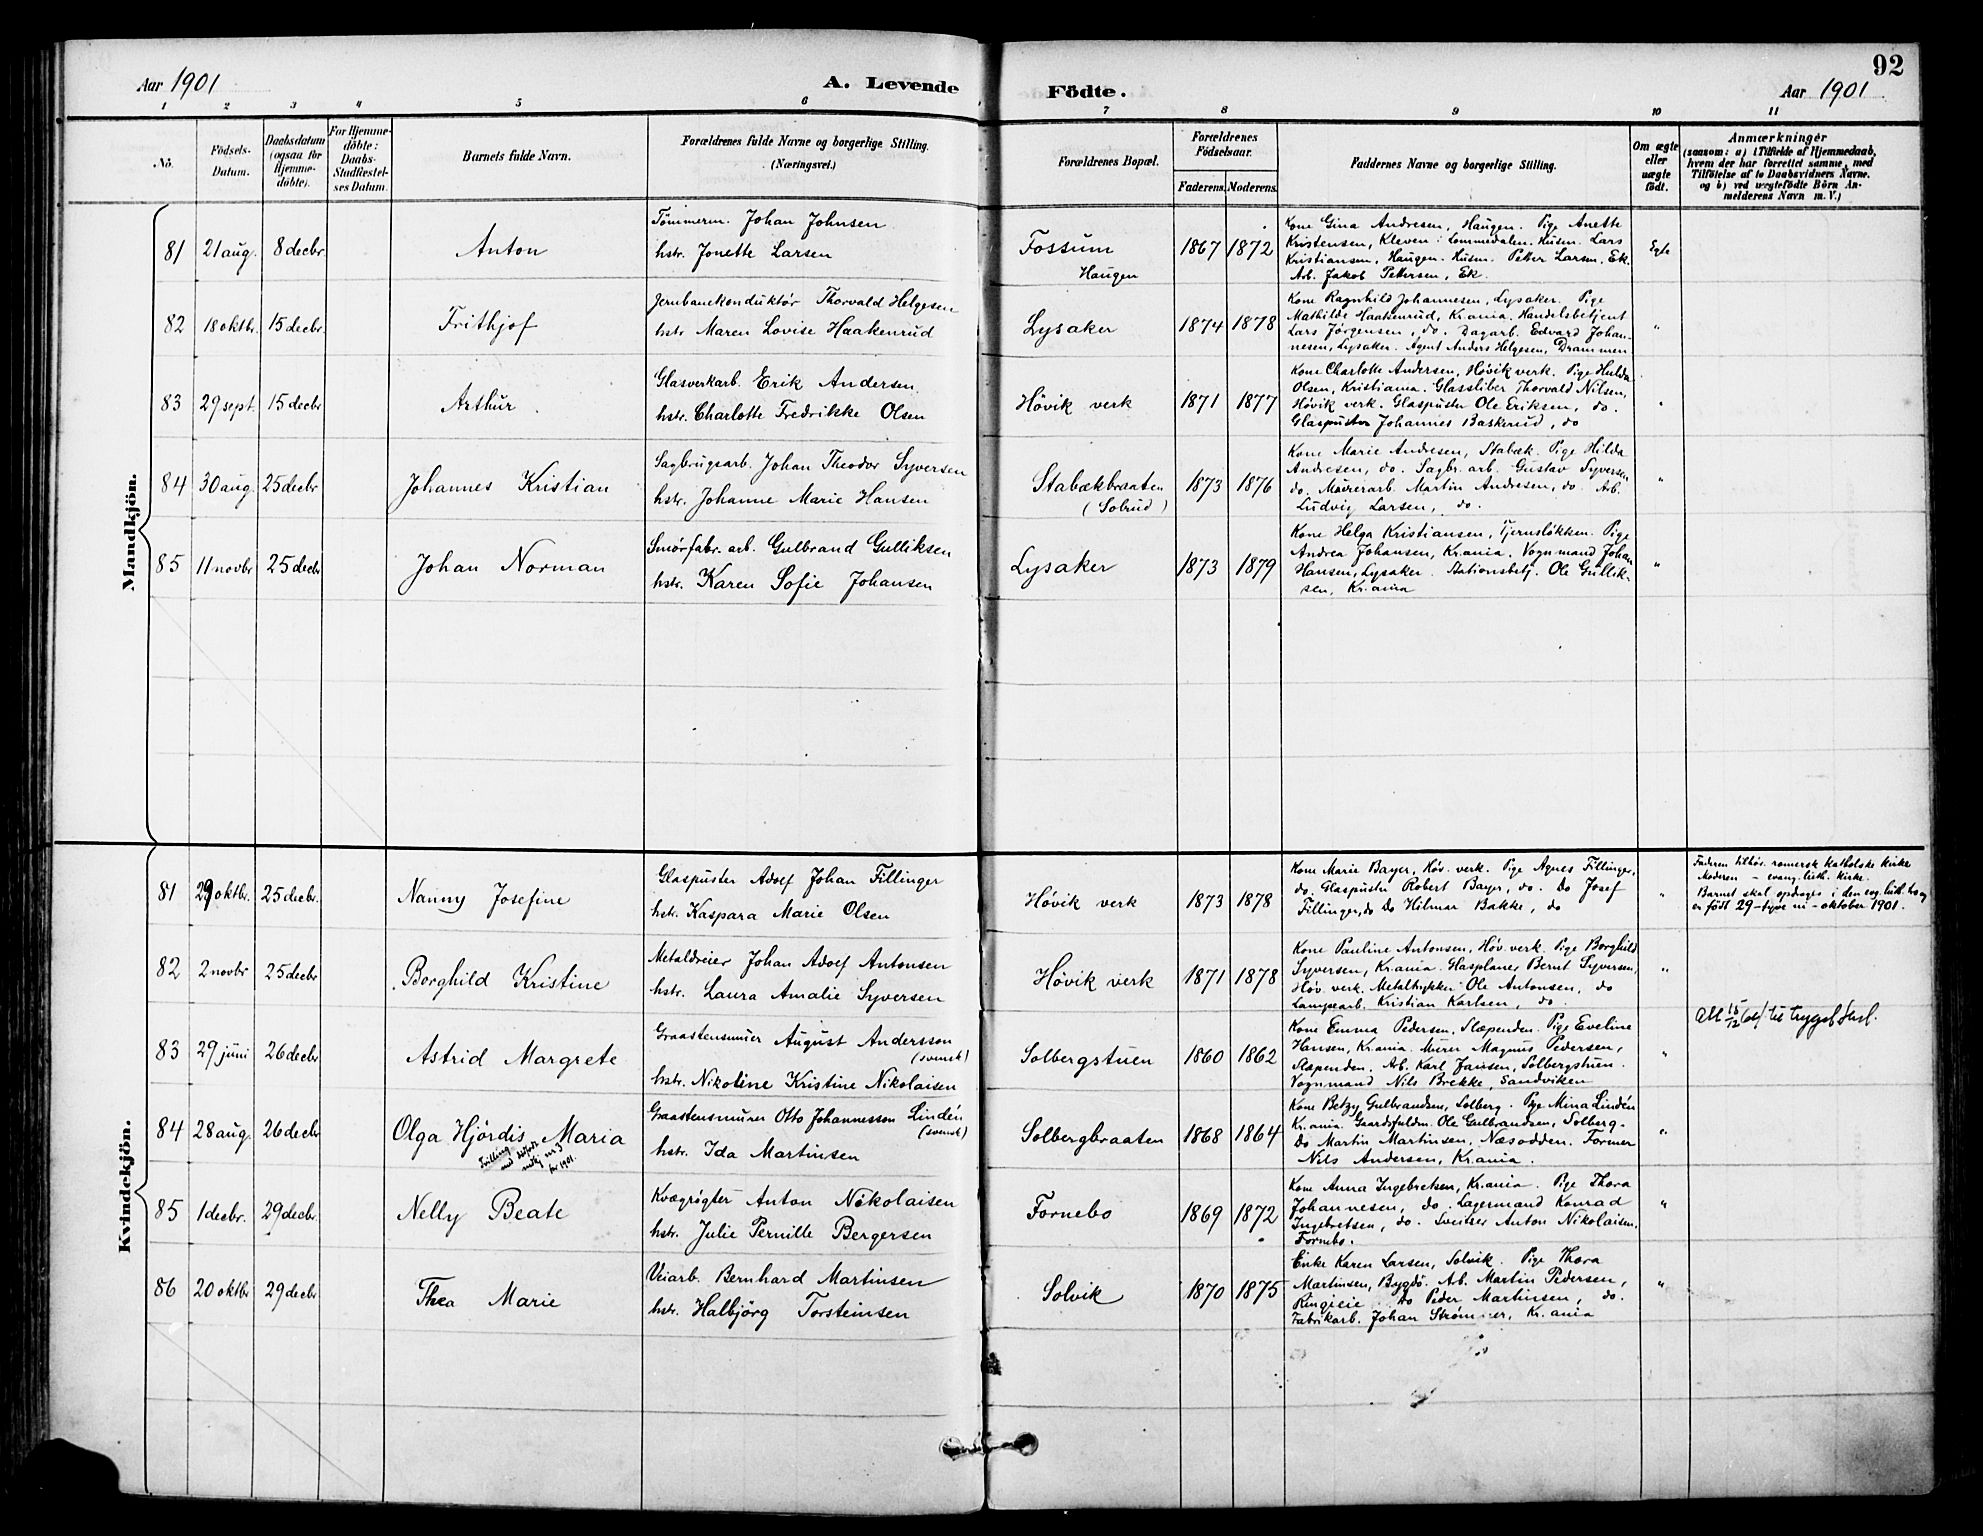 92
Aar 1901
A. Levende
Födte.
Aar 1901
1 2 3 4 5 6 7 8 9 10 11
No.
Födsels-
Datum.
Daabsdatum
(ogsaa for
Hjemme-
döbte).
For Hjemme-
döbte:
Daabs-
Stadfæstel-
ses Datum.
Barnets fulde Navn.
Forældrenes fulde Navne og borgerlige Stilling.
(Næringsvei.)
Forældrenes Bopæl.
Forældrenes
Födselsaar.
Faderens. Moderens.
Faddernes Navne og borgerlige Stilling.
Om ægte
eller
uægte
födt.
Anmærkninger
(saasom: a) i Tilfælde af Hjemmedaab,
hvem der har forrettet samme, med
Tilföielse af to Daabsvidners Navne.
og b) ved uægtefödte Börn An-
melderens Navn m. V.)
Mandkjön.
81 21 aug. 8 decbr. Anton
Tømmerm. Johan Johnsen
hstr. Jonette Larsen
Fossum
Haugen
1867 1872
Kone Gina Andresen, Haugen. Pige Anette
Kristensen, Kleven i Lommedalen. Husm. Lars
Kristiansen, Haugen. Husm. Petter Larsen, Ek.
Arb. Jakob Pettersen, Ek.
Egte
82 18 oktbr. 15 decbr. Frithjof
Jernbanekonduktør Thorvald Helgesen
hstr. Maren Lovise Haakenrud
Lysaker
1874 1878
Kone Ragnhild Johannesen, Lysaker. Pige
Mathilde Haakenrud, Kr.ania. Handelsbetjent
Lars Jörgensen, do. Dagarb. Edvard Johan-
nesen, Lysaker. Agent Anders Helgesen, Drammen
"
83 29 sept. 15 decbr Arthur.
Glasverkarb. Erik Andersen
hstr. Charlotte Fredrikke Olsen
Høvik verk
1871 1877
Kone Charlotte Andersen, Høvik verk. Pige Hulda
Olsen, Kristiania. Glassliber Thorvald Nilsen,
Høvik verk. Glaspuster Ole Eriksen, do.
Glaspuster Johannes Baskerud, do
"
84 30 aug. 25 decbr Johannes Kristian
Sagbrugsarb. Johan Theodor Syversen
hstr. Johanne Marie Hansen
Stabækbraaten
(Solrud)
1873 1876
Kone Marie Andresen, Stabæk. Pige Hilda
Andresen, do. Sagbr. arb. Gustav Syversen
do. Murerarb. Martin Andresen, do. Arb.
Ludvig Larsen, do.
"
85 11 novbr 25 decbr Johan Norman
Smørfabr. arb. Gulbrand Gulliksen
hstr. Karen Sofie Johansen
Lysaker
1873 1879
Kone Helga Kristiansen, Tjernsløkken. Pige
Andrea Johansen, Kr.ania. Vognmand Johan
Hansen, Lysaker. Stationsbetj. Ole Gullik-
sen, Kr.ania
"
Kvindekjön.
81 29 oktbr. 25 decbr. Nanny Josefine
Glaspuster Adolf Johan Fillinger
hstr. Kaspara Marie Olsen
Høvik verk
1873 1878
Kone Marie Bayer, Høv. verk. Pige Agnes Fillinger,
do. Glaspuster Robert Bayer, do. Do Josef
Fillinger, do Do Hilmar Bakke, do
"
Faderen tilhör. romersk katholske kirke
Moderen – evang. luth. kirke.
Barnet skal opdrages i den evg. luth. tro og
er födt 29 – tyve ni – oktober 1901.
82 2 novbr 25 decbr. Borghild Kristine
Metaldreier Johan Adolf Antonsen
hstr. Laura Amalie Syversen
Høvik verk
1871 1878
Kone Pauline Antonsen, Høv. verk. Pige Borghild
Syversen, Kr.ania. Glasplaner Bernt Syversen,
Høv. verk. Metaltrykker Ole Antonsen, do
Lampearb. Kristian Karlsen, do.
"
83 29 juni 26 decbr Astrid Margrete
Graastensmurer August Andersson
(svensk)
hstr. Nikoline Kristine Nikolaisen
Solbergstuen
1860 1862
Kone Emma Pedersen, Slæpenden. Pige Eveline
Hansen, Kr.ania. Murer Magnus Pedersen,
Slæpenden. Arb. Karl Jansen, Solbergstuen.
Vognmand Nils Brekke, Sandviken
"
Att 15/12 til
84 28 aug. 26 decbr Olga Hjördis Maria
Tvilling
med
nr. 3
for 1901.
Graastensmurer Otto Johannesson Lindén
(svensk)
hstr. Ida Martinsen
Solbergbraaten
1868 1864
Kone Betzy Gulbrandsen, Solberg. Pige Mina Lindén
Kr.ania. Gaardsfuldm. Ole Gulbrandsen, Solberg.
Do Martin Martinsen, Næsodden. Former
Nils Andersen, Kr.ania.
"
85 1 decbr. 29 decbr. Nelly Beate
Kvægrøgter Anton Nikolaisen
hstr. Julie Pernille Bergersen
Fornebo
1869 1872
Kone Anna Ingebretsen, Kr.ania. Pige Thora
Johannesen, do. Lagermand Konrad
Ingebretsen, do. Sveitser Anton Nikolaisen,
Fornebo.
"
86 20 oktbr 29 decbr Thea Marie
Veiarb. Bernhard Martinsen
hstr. Halbjörg Torsteinsen
Solvik
1870 1875
Enke Karen Larsen, Solvik. Pige Thora
Martinsen, Bygdö. Arb. Martin Pedersen,
Ringieie. Do Peder Martinsen, do.
Fabrikarb. Johan, Kr.ania
"